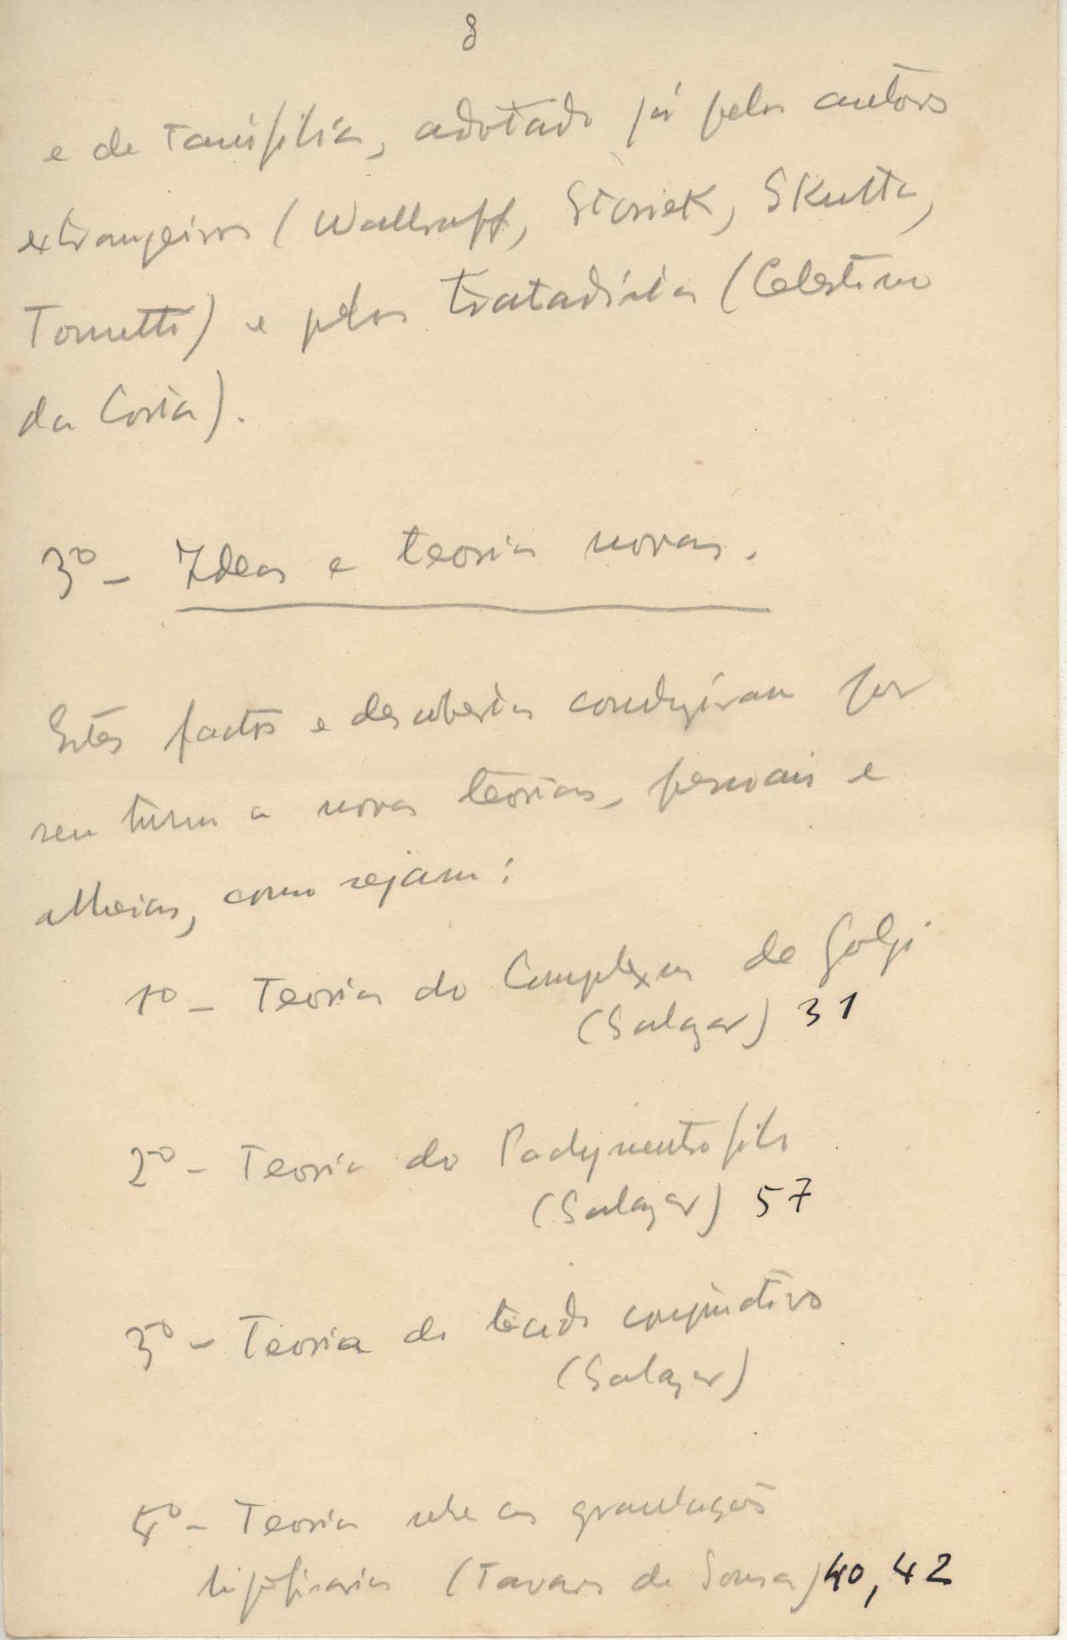 8
e de Tanifilia, adotado já pelos autores
extrangeiros (Wallraff, Storiek, Skutta,
Tometti) e pelos tratadistas (Celestino
da Costa).
3º - Ideas e teorias novas.
Estes factos e descobertas conduziram por
seu turno a novas teorias, pessoais e
alheias, como sejam:
1º - Teoria do Complexus de Golgi
(Salazar) 31
2º - Teoria do
(Salazar) 57
3º - Teoria do tecido conjuntivo
(Salazar)
4º - Teoria sobre as granulações
hipofisarias (Tavares de Sousa) 40, 42